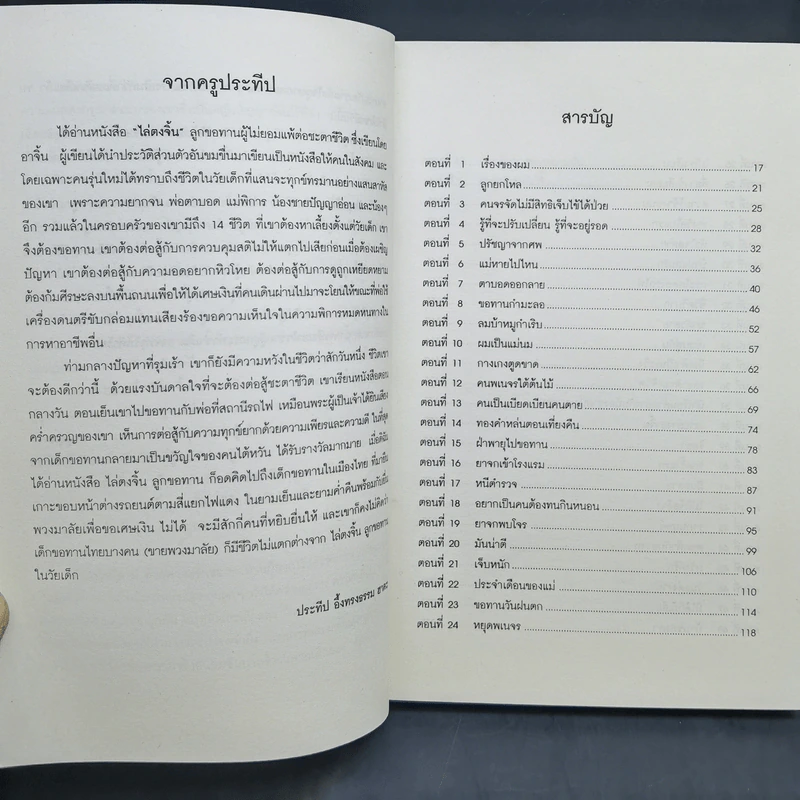 จากครูประทีป
ได้อ่านหนังสือ "ไล่ตงจิ้น" ลูกขอทานผู้ไม่ยอมแพ้ต่อชะตาชีวิต ซึ่งเขียนโดย
อาจิ้น ผู้เขียนได้นำประวัติส่วนตัวอันขมขื่นมาเขียนเป็นหนังสือให้คนในสังคม และ
โดยเฉพาะคนรุ่นใหม่ได้ทราบถึงชีวิตในวัยเด็กที่แสนจะทุกข์ทรมานอย่างแสนสาหัส
ของเขา เพราะความยากจน พ่อตาบอด แม่พิการ น้องชายปัญญาอ่อน และน้องๆ
อีก รวมแล้วในครอบครัวของเขามีถึง 14 ชีวิต ที่เขาต้องหาเลี้ยงตั้งแต่วัยเด็ก เขา
จึงต้องขอทาน เขาต้องต่อสู้กับการควบคุมสติไม่ให้แตกไปเสียก่อนเมื่อต้องเผชิญ
ปัญหา เขาต้องต่อสู้กับความอดอยากหิวโหย ต้องต่อสู้กับการดูถูกเหยียดหยาม
ต้องก้มศีรษะลงบนพื้นถนนเพื่อให้ได้เศษเงินที่คนเดินผ่านไปมาจะโยนให้ขณะที่พ่อใช้
เครื่องดนตรีขับกล่อมแทนเสียงร้องขอความเห็นใจในความพิการหมดหนทางใน
การหาอาชีพอื่น
ท่ามกลางปัญหาที่รุมเร้า เขาก็ยังมีความหวังในชีวิตว่าสักวันหนึ่ง ชีวิตเขา
จะต้องดีกว่านี้ ด้วยแรงบันดาลใจที่จะต้องต่อสู้ชะตาชีวิต เขาเรียนหนังสือตอน
กลางวัน ตอนเย็นเขาไปขอทานกับพ่อที่สถานีรถไฟ เหมือนพระผู้เป็นเจ้าได้ยินเสียง
คร่ำครวญของเขา เห็นการต่อสู้กับความทุกข์ยากด้วยความเพียรและความดี ในที่สุด
จากเด็กขอทานกลายมาเป็นขวัญใจของคนไต้หวัน ได้รับรางวัลมากมาย เมื่อดิฉัน
ได้อ่านหนังสือ ไล่ตงจิ้น ลูกขอทาน ก็อดคิดไปถึงเด็กขอทานในเมืองไทย ที่มายืน
เกาะขอบหน้าต่างรถยนต์ตามสี่แยกไฟแดง ในยามเย็นและยามค่ำคืนพร้อมกับยื่น
พวงมาลัยเพื่อขอเศษเงิน ไม่ได้ จะมีสักกี่คนที่หยิบยื่นให้ และเขาก็คงไม่คิดว่า
เด็กขอทานไทยบางคน (ขายพวงมาลัย) ก็มีชีวิตไม่แตกต่างจาก ไล่ตงจิ้น ลูกขอทาน
ในวัยเด็ก
ประทีป อึ้งทรงธรรม ฮาตะ
สารบัญ
ตอนที่ 1 เรื่องของผม 17
ตอนที่ 2 ลูกยกโหล 21
ตอนที่ 3 คนจรจัดไม่มีสิทธิเจ็บไข้ได้ป่วย 25
ตอนที่ 4 รู้ที่จะปรับเปลี่ยน รู้ที่จะอยู่รอด 28
ตอนที่ 5 ปรัชญาจากศพ 32
ตอนที่ 6 แม่หายไปไหน 36
ตอนที่ 7 ตาบอดออกลาย 40
ตอนที่ 8 ขอทานกำมะลอ 46
ตอนที่ 9 ลมบ้าหมูกำเริบ 52
ตอนที่ 10 ผมเป็นแม่นม 57
ตอนที่ 11 กางเกงตูดขาด 62
ตอนที่ 12 คนพเนจรใต้ต้นไม้ 66
ตอนที่ 13 คนเป็นเบียดเบียนคนตาย 69
ตอนที่ 14 ทองคำหล่นตอนเที่ยงคืน 74
ตอนที่ 15 ฝ่าพายุไปขอทาน 78
ตอนที่ 16 ยาจกเข้าโรงแรม 83
ตอนที่ 17 หนีตำรวจ 87
ตอนที่ 18 อยากเป็นคนต้องทนกินหนอน 91
ตอนที่ 19 ยาจกพบโจร 95
ตอนที่ 20 มันน่าตี 99
ตอนที่ 21 เจ็บหนัก 106
ตอนที่ 22 ประจำเดือนของแม่ 110
ตอนที่ 23 ขอทานวันฝนตก 114
ตอนที่ 24 หยุดพเนจร 118